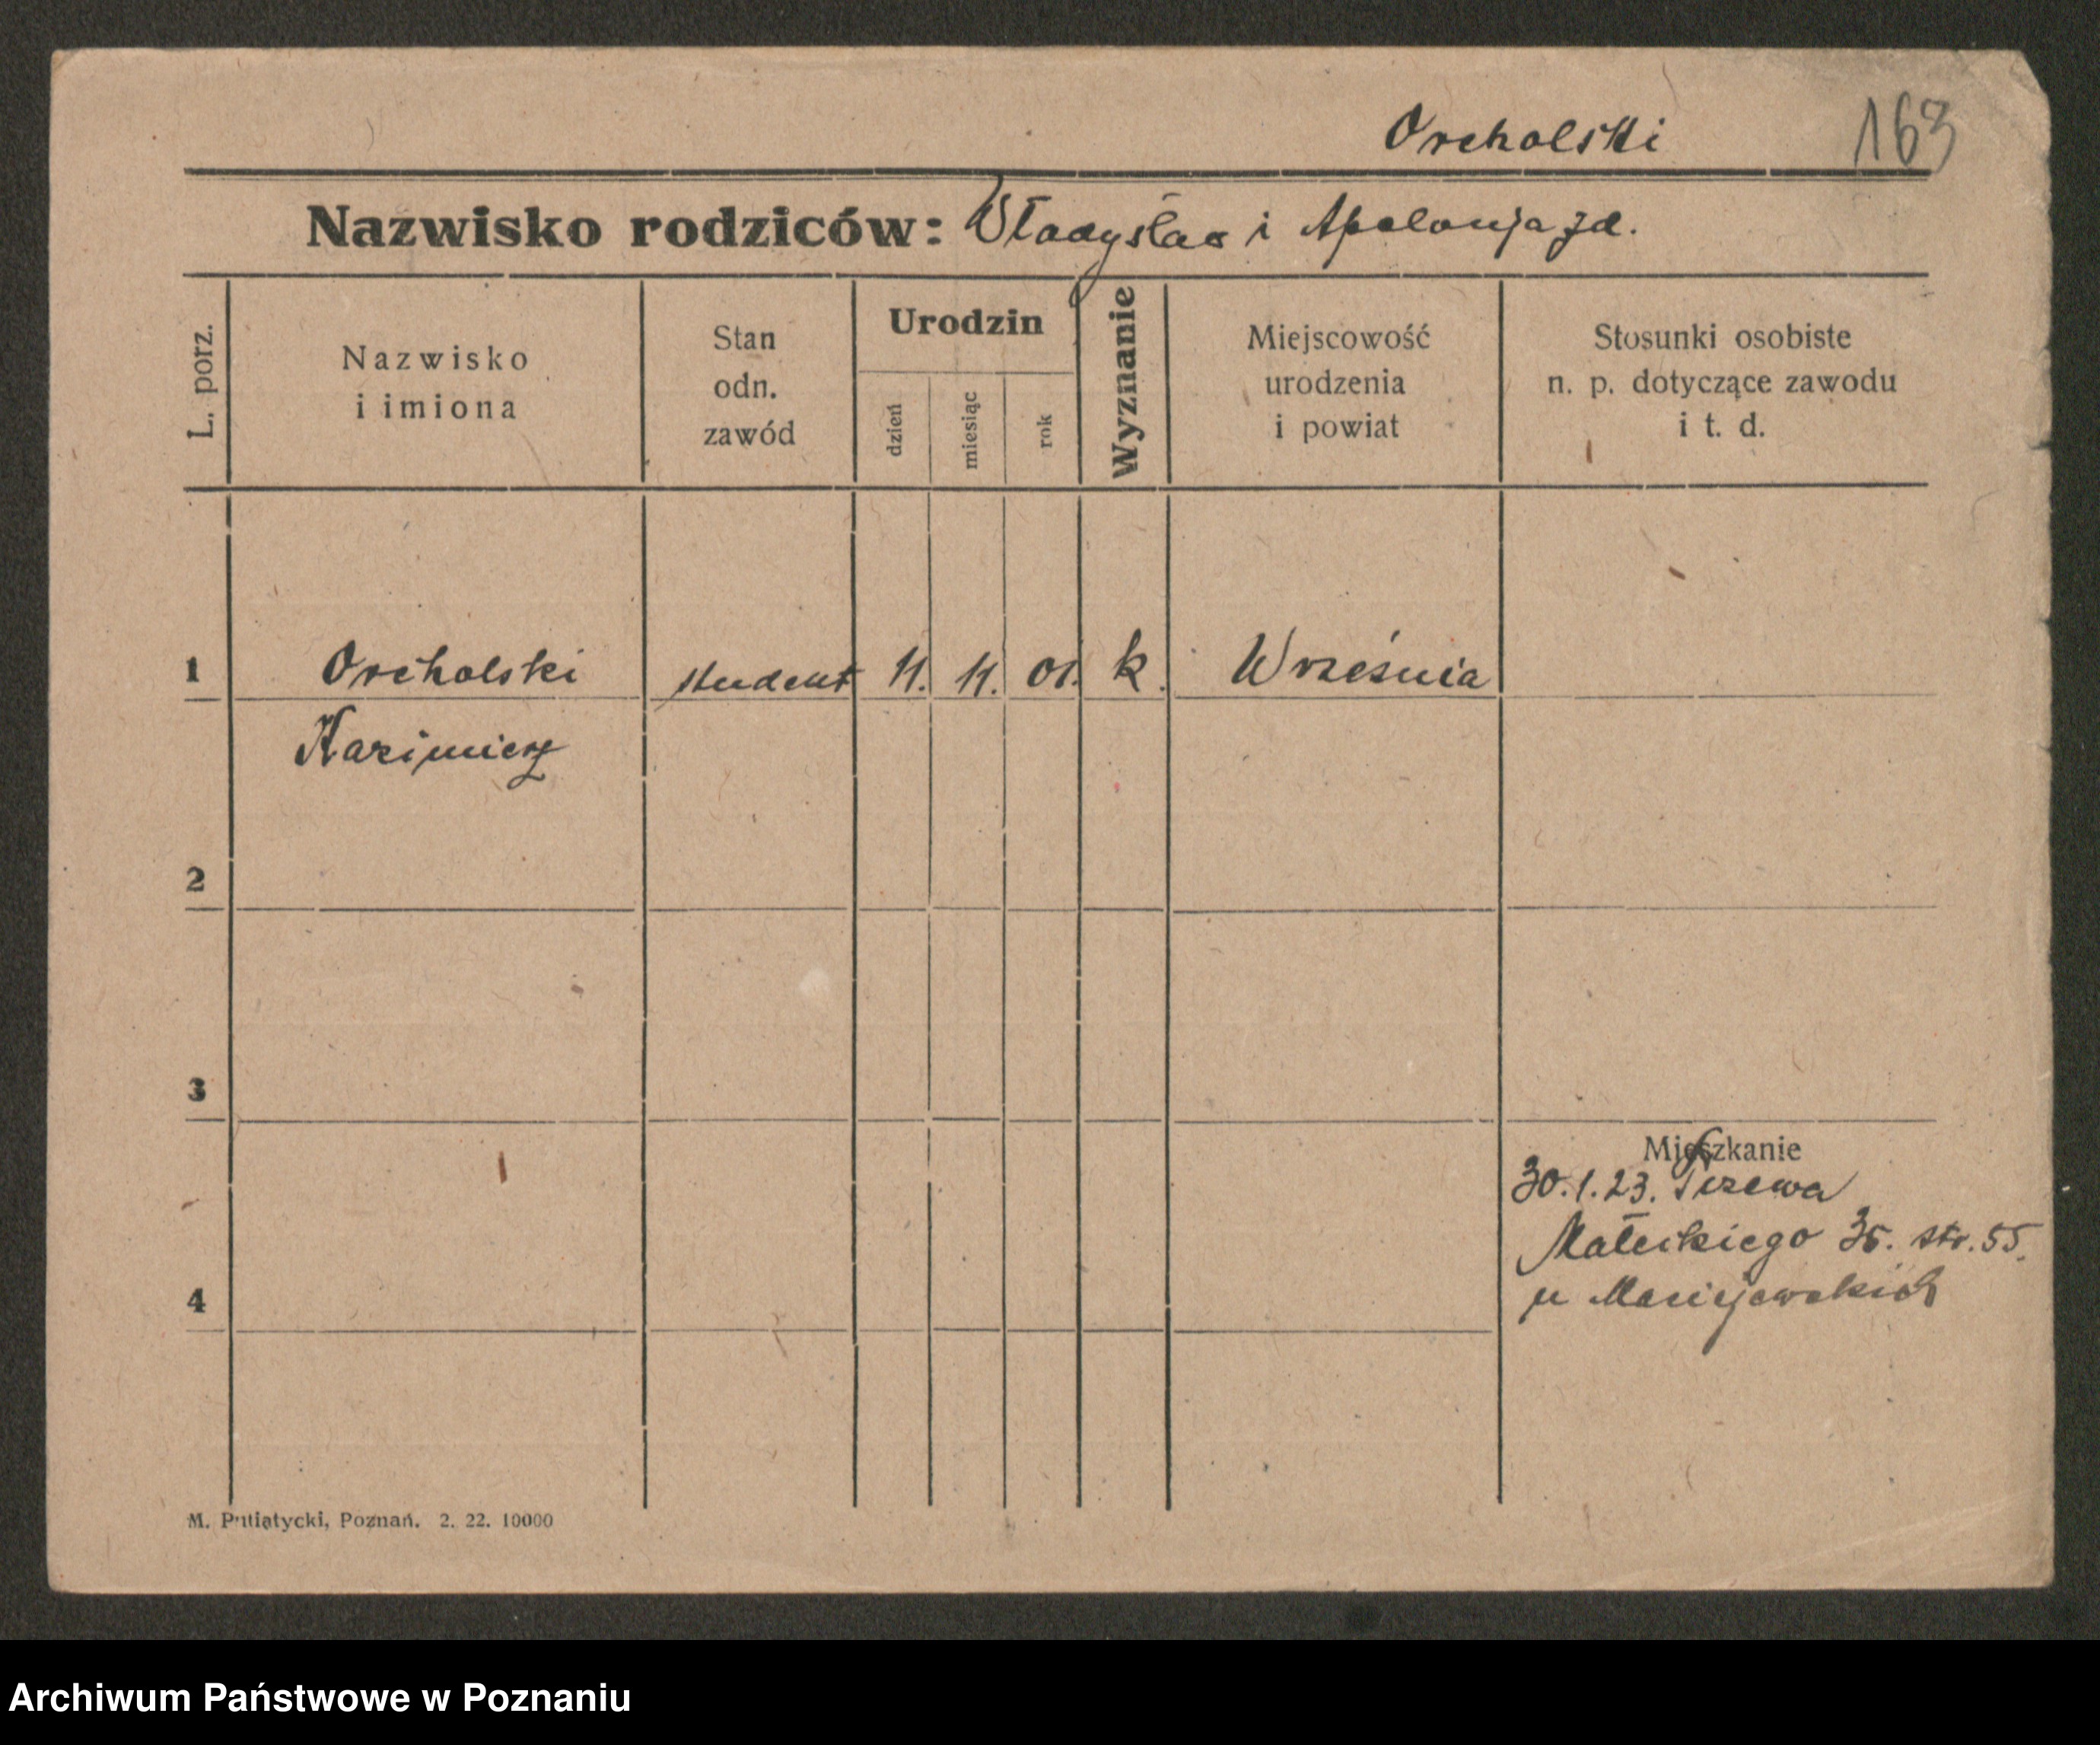 Orcholski 163
Nazwisko rodziców: Władysław i Apolonja zd.
L. porz.
Nazwisko
i imiona
Stan
odn.
zawód
Urodzin
dzień
miesiąc
rok
Wyznanie
Miejscowość
urodzenia
i powiat
Stosunki osobiste
n. p. dotyczące zawodu
i t. d.
1 Orcholski student 11. 11. 01. k. Września
Kazimierz
2
3
Mieszkanie
30.1.23.
Małeckiego 35. str. 55.
4 u Maciejewskich
M. Putiatycki, Poznań. 2. 22. 10000
Archiwum Państwowe w Poznaniu